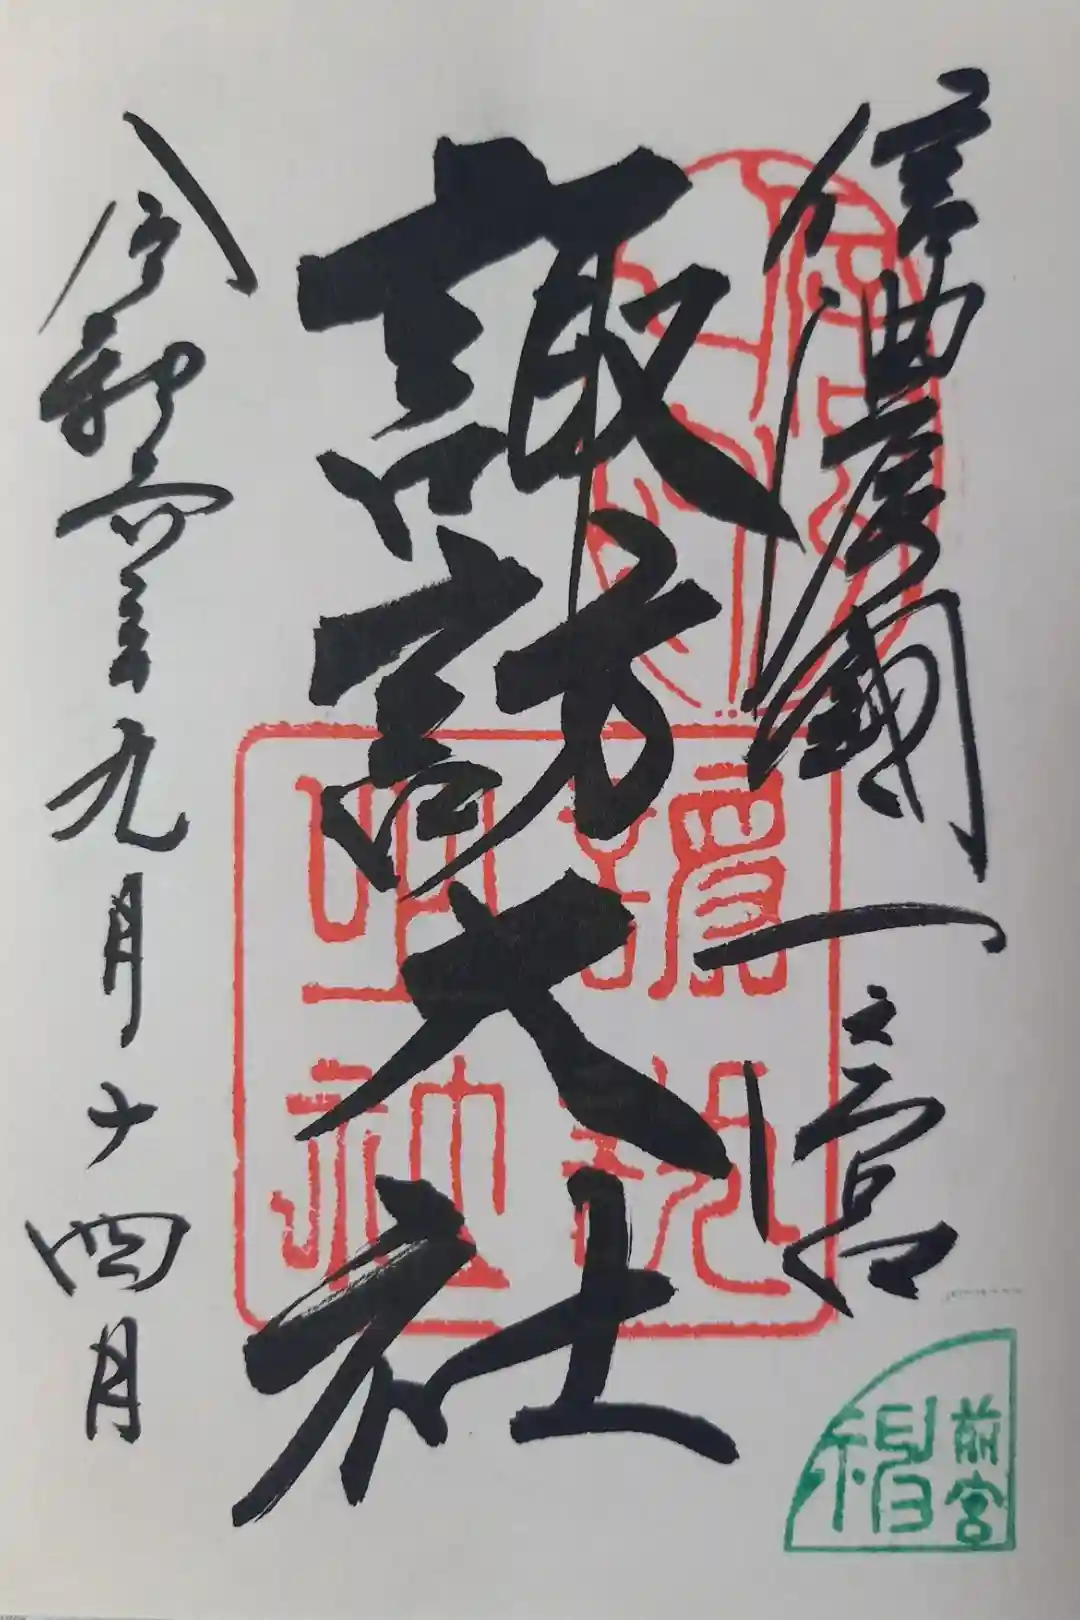 信濃國一之宮
諏訪大社
令和六年九月十四日
前宮